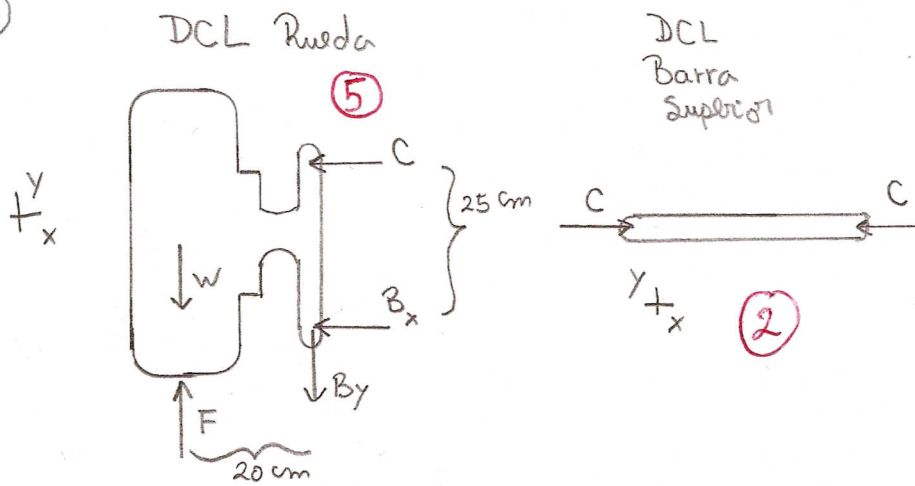 DCL Rueda
5
C
25 cm
Bx
By
W
F
20 cm
y
x
DCL
Barra
Superior
C
C
y
x
2